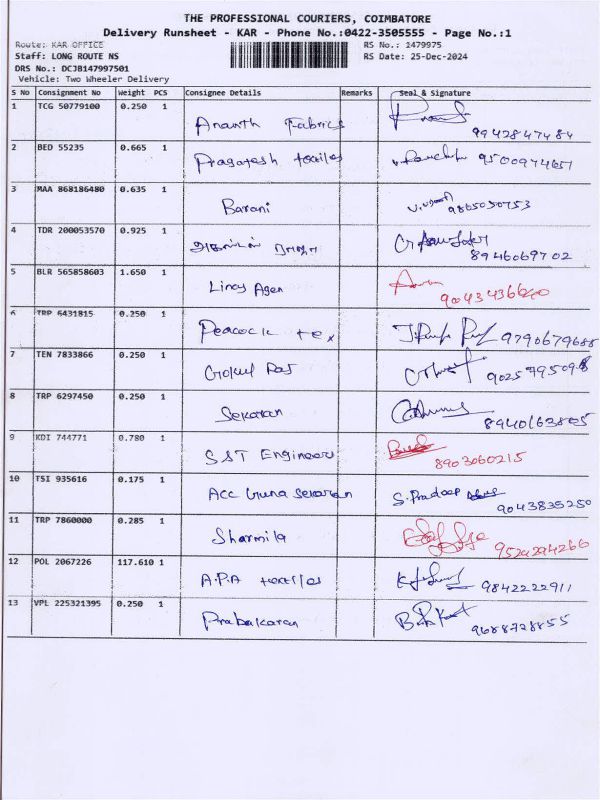 THE PROFESSIONAL COURIERS, COIMBATORE
Delivery Runsheet - KAR - Phone No.:0422-3505555 - Page No.:1
Route: KAR OFFICE RS No.: 1479975
Staff: LONG ROUTE NS RS Date: 25-Dec-2024
DRS No.: DCJB147997501
Vehicle: Two Wheeler Delivery
S No Consignment No Weight PCS Consignee Details Remarks Seal & Signature
1 TCG 50779100 0.250 1 Ananth Fabrics 9942847484
2 BED 55235 0.665 1 Pragatesh textiles 9500974657
3 MAA 868186480 0.635 1 Barani 9865030753
4 TDR 200053570 0.925 1 8946069702
5 BLR 565858603 1.650 1 Linoy Agen 9043436640
6 TRP 6431815 0.250 1 Peacock tex 9790679688
7 TEN 7833866 0.250 1 Gokul Raj 9025795098
8 TRP 6297450 0.250 1 Sekaran 8940163805
9 KDI 744771 0.780 1 SST Engineer 8903060215
10 TSI 935616 0.175 1 Acc Guna Sekaran S. Pradeep 9043835250
11 TRP 7860000 0.285 1 Sharmila 9524294266
12 POL 2067226 117.610 1 A.P.A textiles 9842222911
13 VPL 225321395 0.250 1 Prabakaran 9688728855